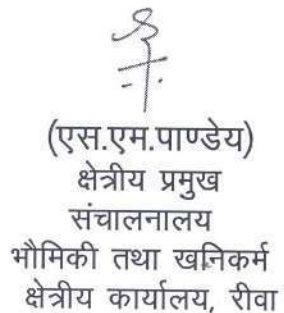 (एस.एम.पाण्डेय)
क्षेत्रीय प्रमुख
संचालनालय
भौमिकी तथा खनिकर्म
क्षेत्रीय कार्यालय, रीवा